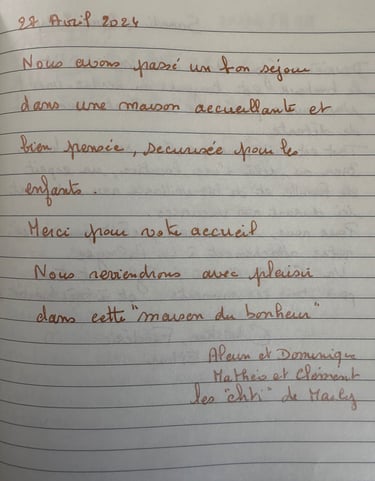 27 Avril 2024
Nous avons passé un bon séjour
dans une maison accueillante et
bien pensée, securisée pour les
enfants.
Merci pour votre accueil
Nous reviendrons avec plaisir
dans cette "maison du bonheur"
Alain et Dominique
Mathéis et Clément
les "chti" de